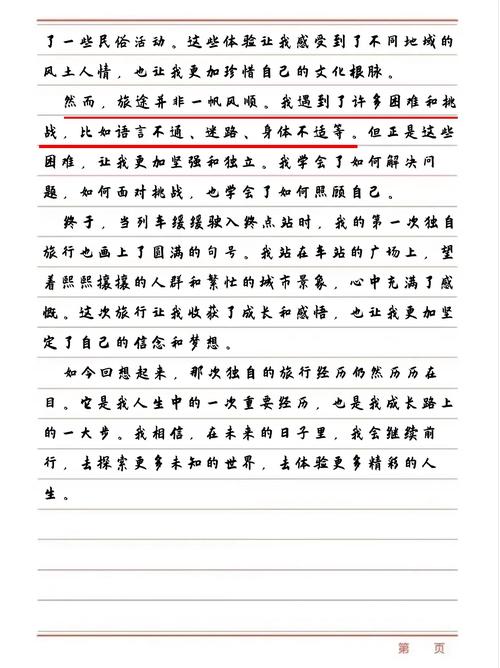 了一些民俗活动。这些体验让我感受到了不同地域的
风土人情，也让我更加珍惜自己的文化根脉。
然而，旅途并非一帆风顺。我遇到了许多困难和挑
战，比如语言不通、迷路、身体不适等。但正是这些
困难，让我更加坚强和独立。我学会了如何解决问
题，如何面对挑战，也学会了如何照顾自己。
终于，当列车缓缓驶入终点站时，我的第一次独自
旅行也画上了圆满的句号。我站在车站的广场上，望
着熙熙攘攘的人群和繁忙的城市景象，心中充满了感
慨。这次旅行让我收获了成长和感悟，也让我更加坚
定了自己的信念和梦想。
如今回想起来，那次独自的旅行经历仍然历历在
目。它是我人生中的一次重要经历，也是我成长路上
的一大步。我相信，在未来的日子里，我会继续前
行，去探索更多未知的世界，去体验更多精彩的人
生。
第 页